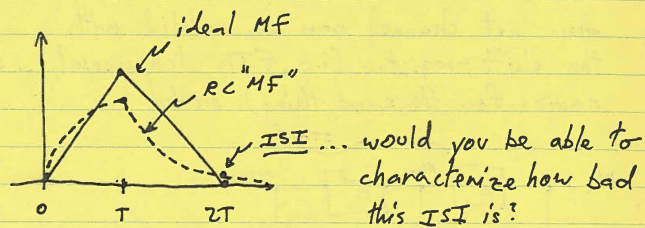 ideal MF
RC "MF"
ISI ... would you be able to
characterize how bad
this ISI is?
0 T 2T